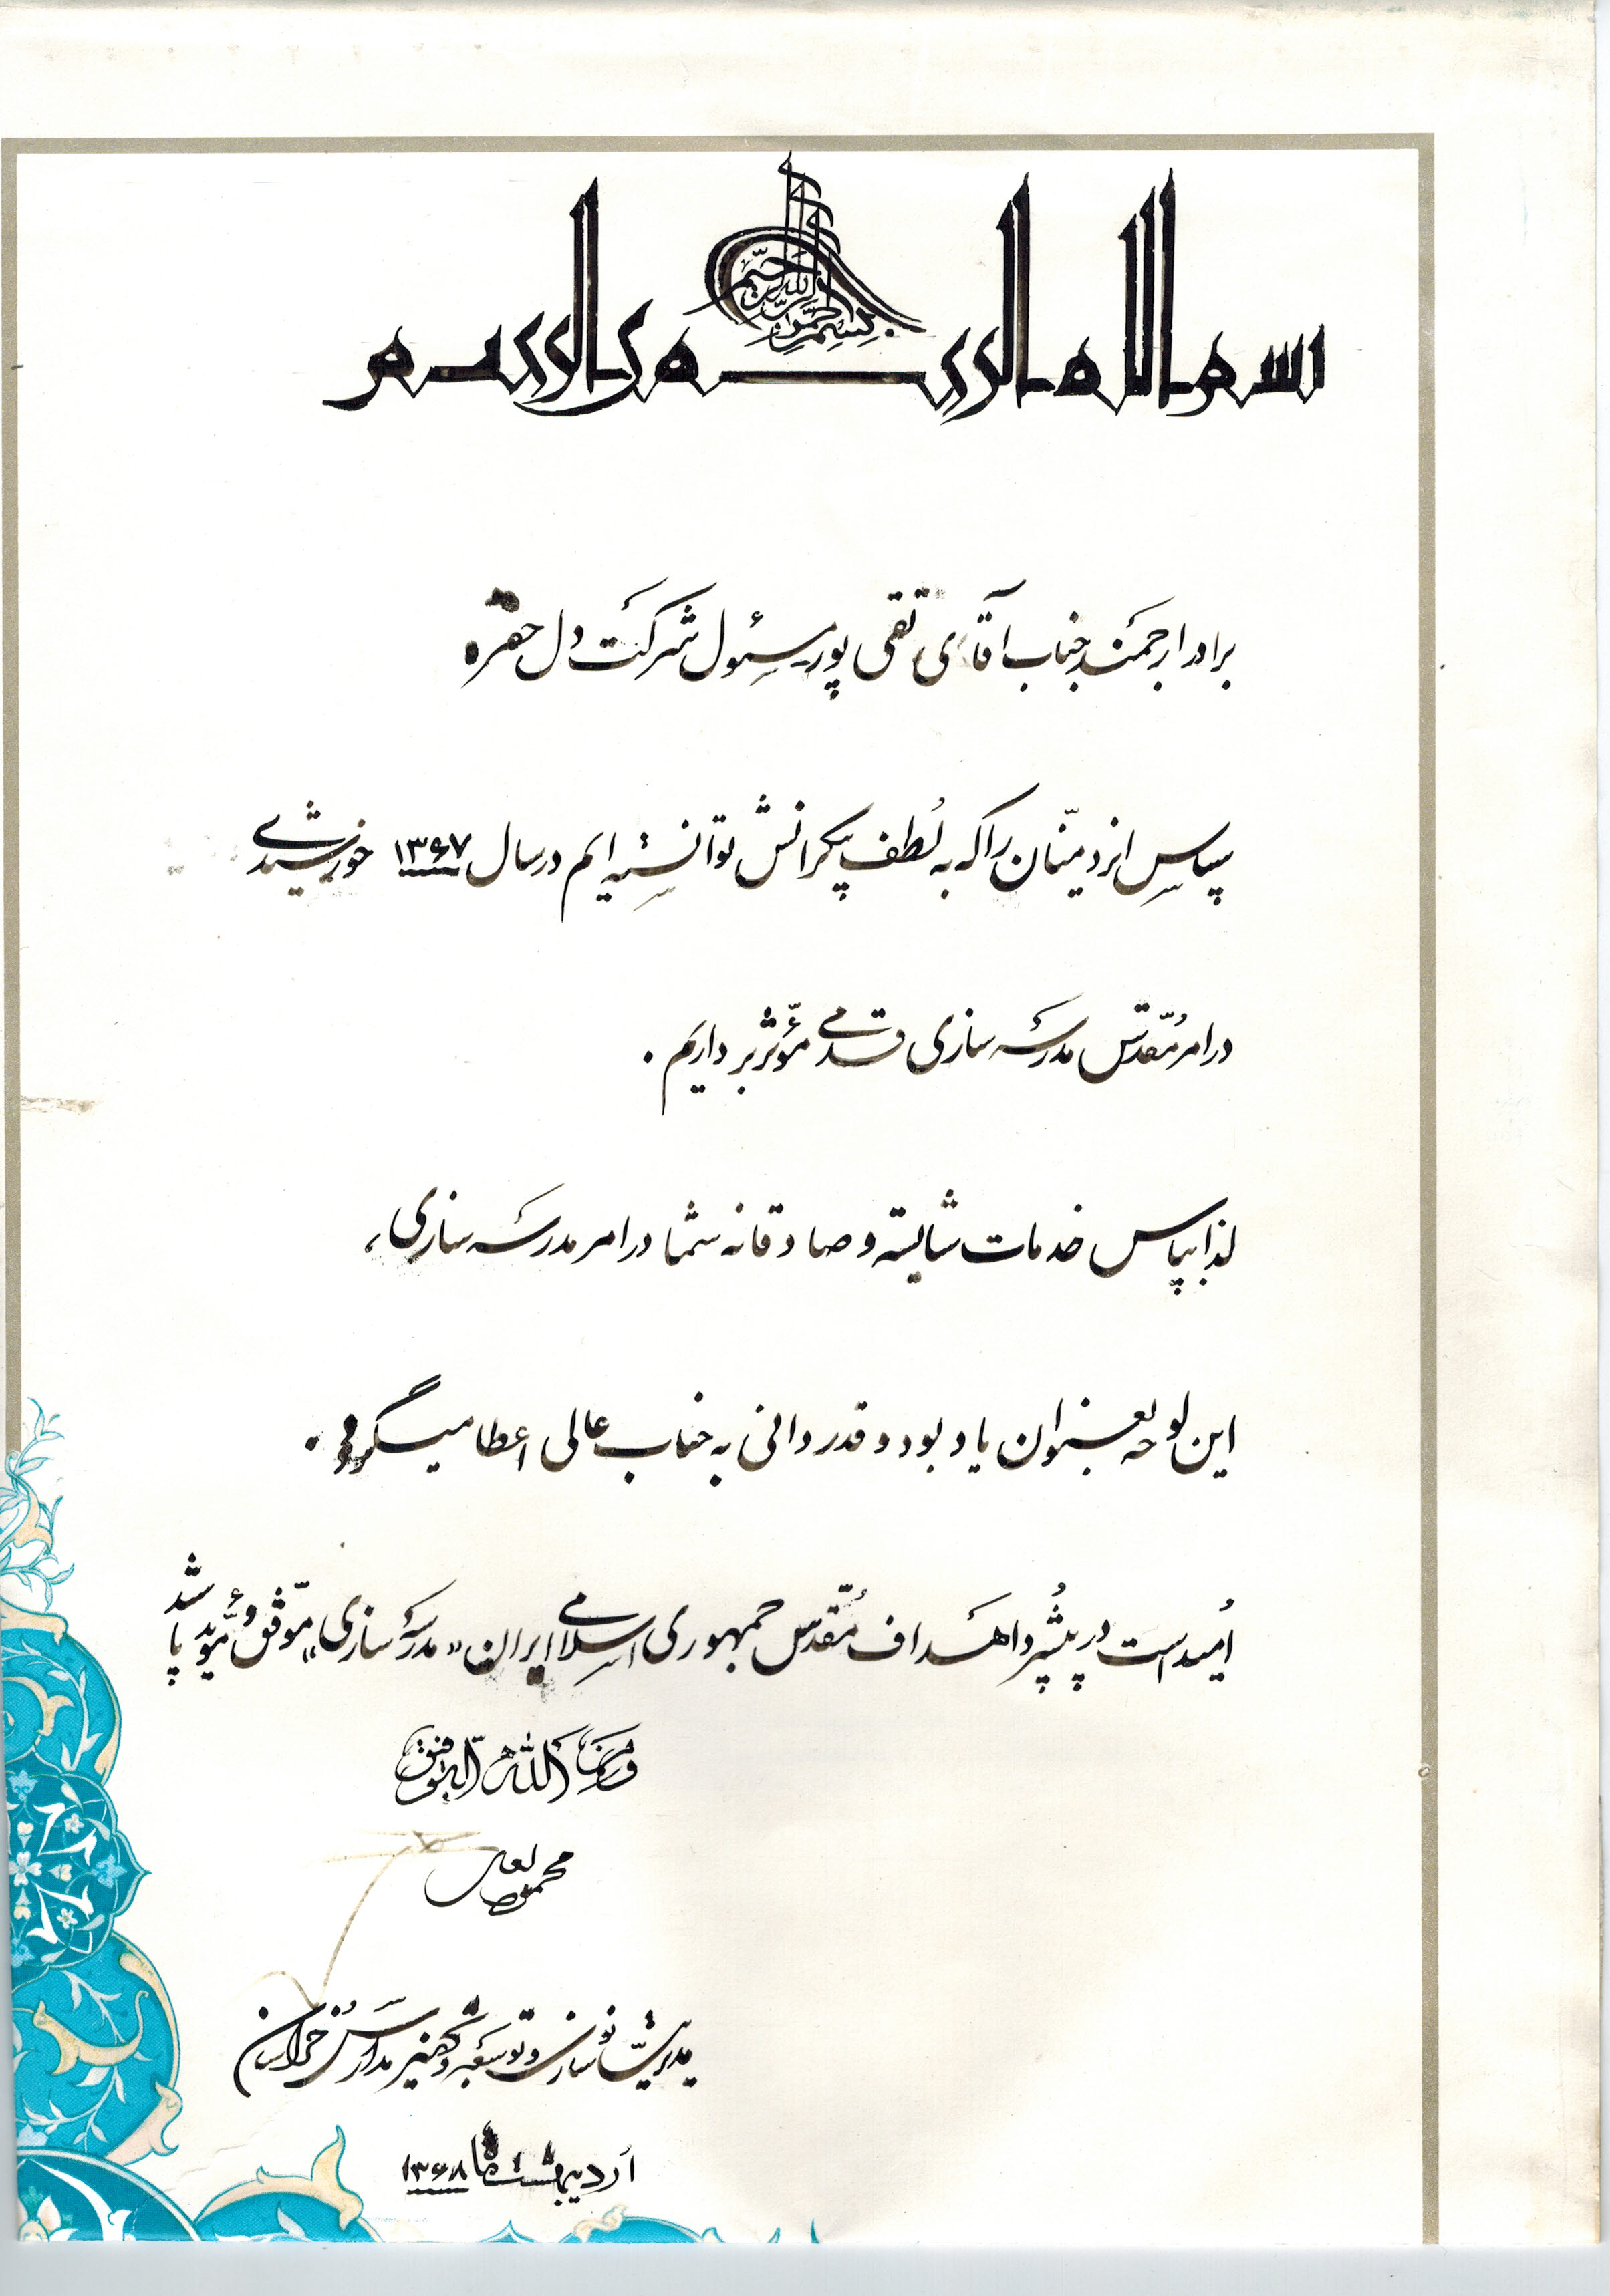 بسم الله الرحمن الرحیم
بسم الله الرحمن الرحیم
برادر ارجمند جناب آقای تقی پور مسئول شرکت دل حفره
سپاس ایزد منّان را که به لُطف بیکرانش توانسته ایم در سال ۱۳۶۷ خورشیدی
در امر مُقدّس مدرسه سازی قدمی مؤثّر برداریم .
لذا بپاس خدمات شایسته و صادقانه شما در امر مدرسه سازی،
این لوحه بعنوان یادبود و قدردانی به جناب عالی اعطا میگردد .
اُمید است در پیشُبرد اهداف مُقدّس جمهوری اسلامی ایران «مدرسه سازی» موّفق و مؤیّد باشید
و من الله التوفیق
محمود
مدیریّت نوسازی و توسعه و تجهیز مدارس خراسان
اردیبهشت ماه ۱۳۶۸